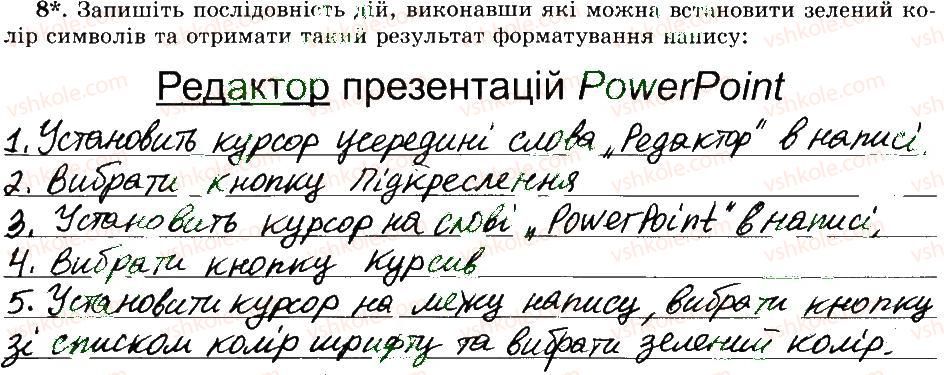 8*. Запишіть послідовність дій, виконавши які можна встановити зелений ко-
лір символів та отримати такий результат форматування напису:
Редактор презентацій PowerPoint
1. Установить курсор усередині слова „Редактор" в написі.
2. Вибрати кнопку Підкреслення
3. Установить курсор на слові „PowerPoint" в написі,
4. Вибрати кнопку курсив
5. Установити курсор на межу напису, вибрати кнопку
зі списком колір шрифту та вибрати зелений колір.